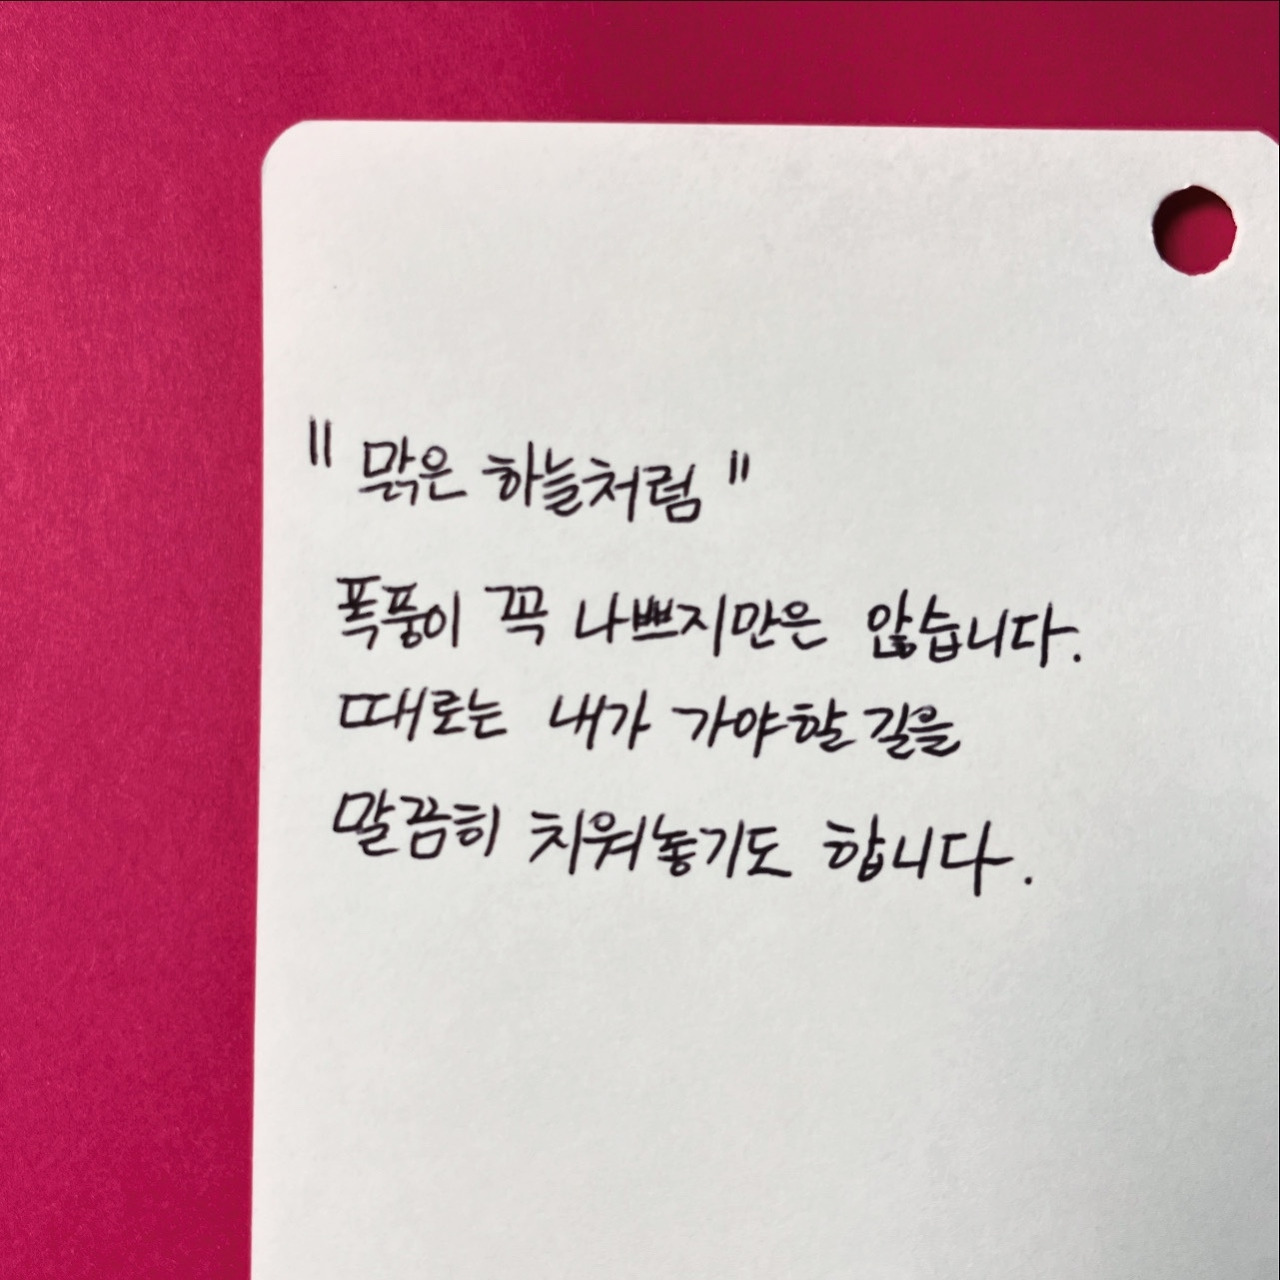 "맑은 하늘처럼"
폭풍이 꼭 나쁘지만은 않습니다.
때로는 내가 가야할 길을
말끔히 치워놓기도 합니다.